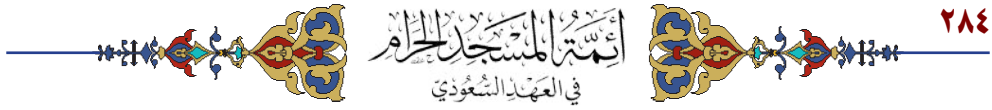 ٢٨٤
أَئِمَّةُ المَسْجِدِ الحَرَامِ
فِي العَهْدِ السُّعُودِيّ